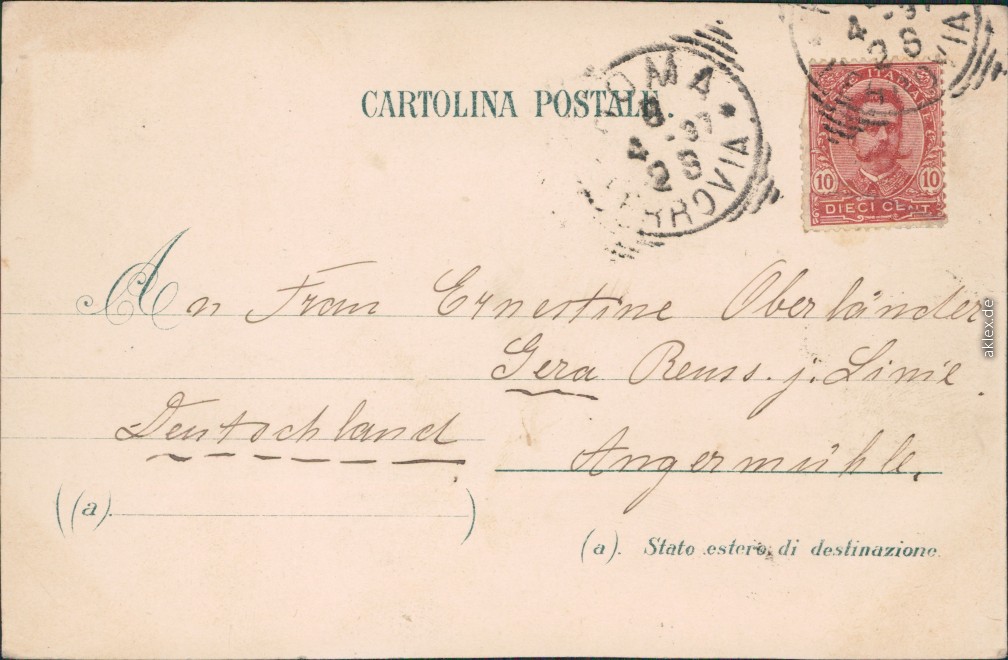 CARTOLINA POSTALE
ROMA
4
97
2 S
FERROVIA
4
97
2 S
ITALIA
10 10
DIECI CENT
An Frau Ernestine Oberländer
Gera Reuss. j. Linie
Deutschland
Angermühle.
(a).
(a). Stato estero di destinazione
aklex.de